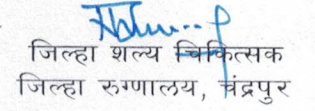 जिल्हा शल्य चिकित्सक
जिल्हा रुग्णालय, चंद्रपुर